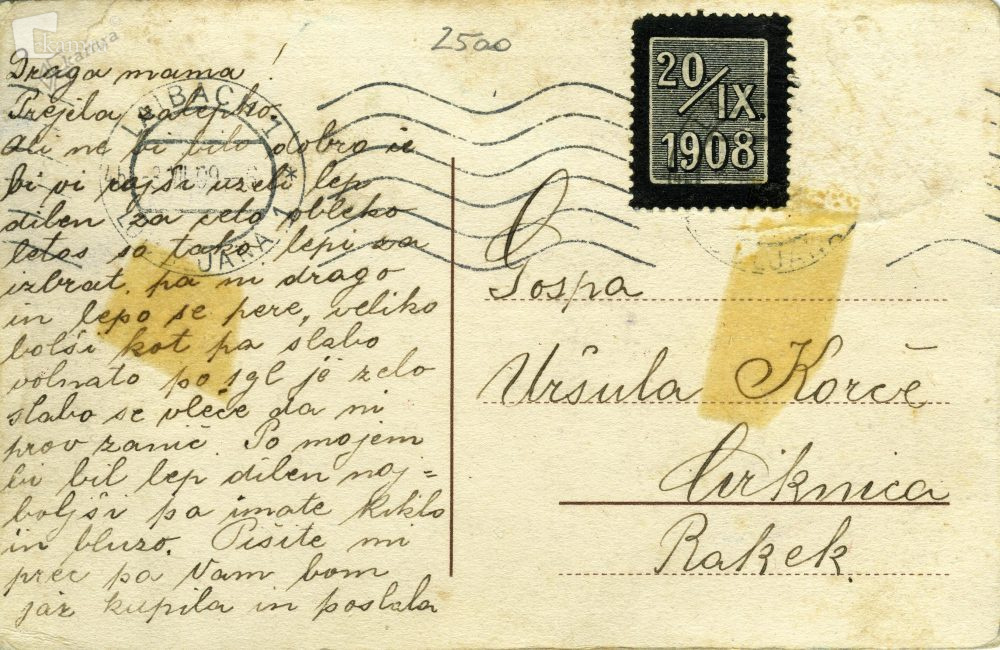 2500
20/IX.
1908
LAIBACH 1
Draga mama!
Prejila zalepko.
Ali ne bi bilo dobro če
bi vi rajši vzeli lep
dilen za celo obleko
letos so tako lepi za
izbrat, pa ni drago
in lepo se pere, veliko
bolši kot pa slabo
volnato po 1gl je zelo
slabo se vleče da ni
prov zanič. Po mojem
bi bil lep dilen naj=
boljši pa imate kiklo
in bluzo. Pišite mi
prec pa Vam bom
jaz kupila in poslala
Gospa
Uršula Korče
Cirknica
Rakek.